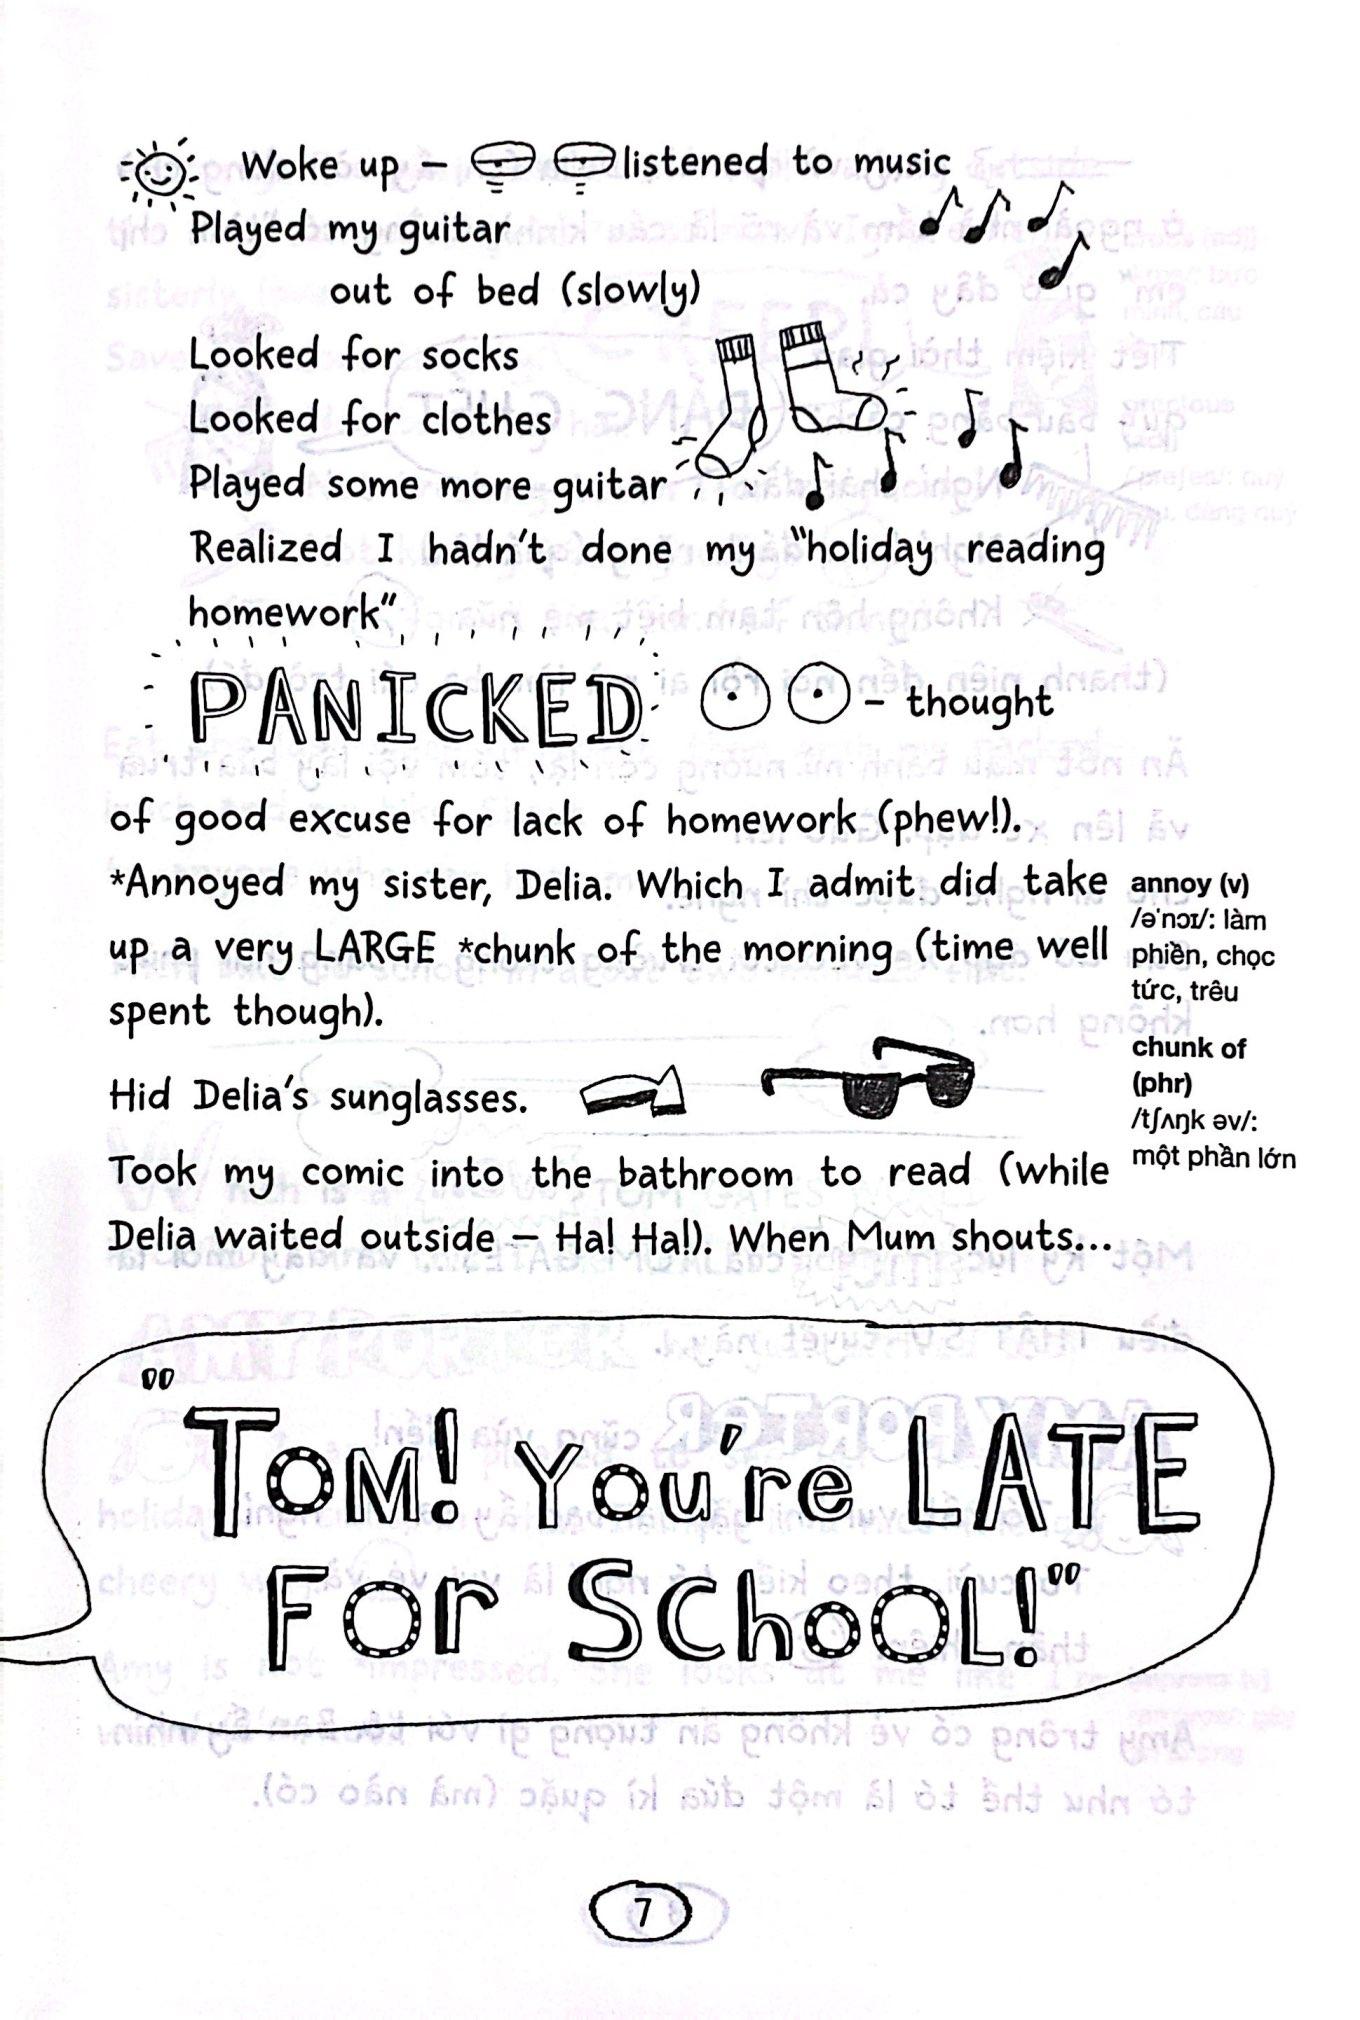 Woke up – listened to music
Played my guitar
out of bed (slowly)
Looked for socks
Looked for clothes
Played some more guitar
Realized I hadn't done my "holiday reading
homework"
PANICKED – thought
of good excuse for lack of homework (phew!).
*Annoyed my sister, Delia. Which I admit did take
up a very LARGE *chunk of the morning (time well
spent though).
annoy (v)
/əˈnɔɪ/: làm
phiền, chọc
tức, trêu
chunk of
(phr)
/tʃʌŋk əv/:
một phần lớn
Hid Delia's sunglasses.
Took my comic into the bathroom to read (while
Delia waited outside – Ha! Ha!). When Mum shouts...
"TOM! You're LATE
FOr SChOOL!"
7